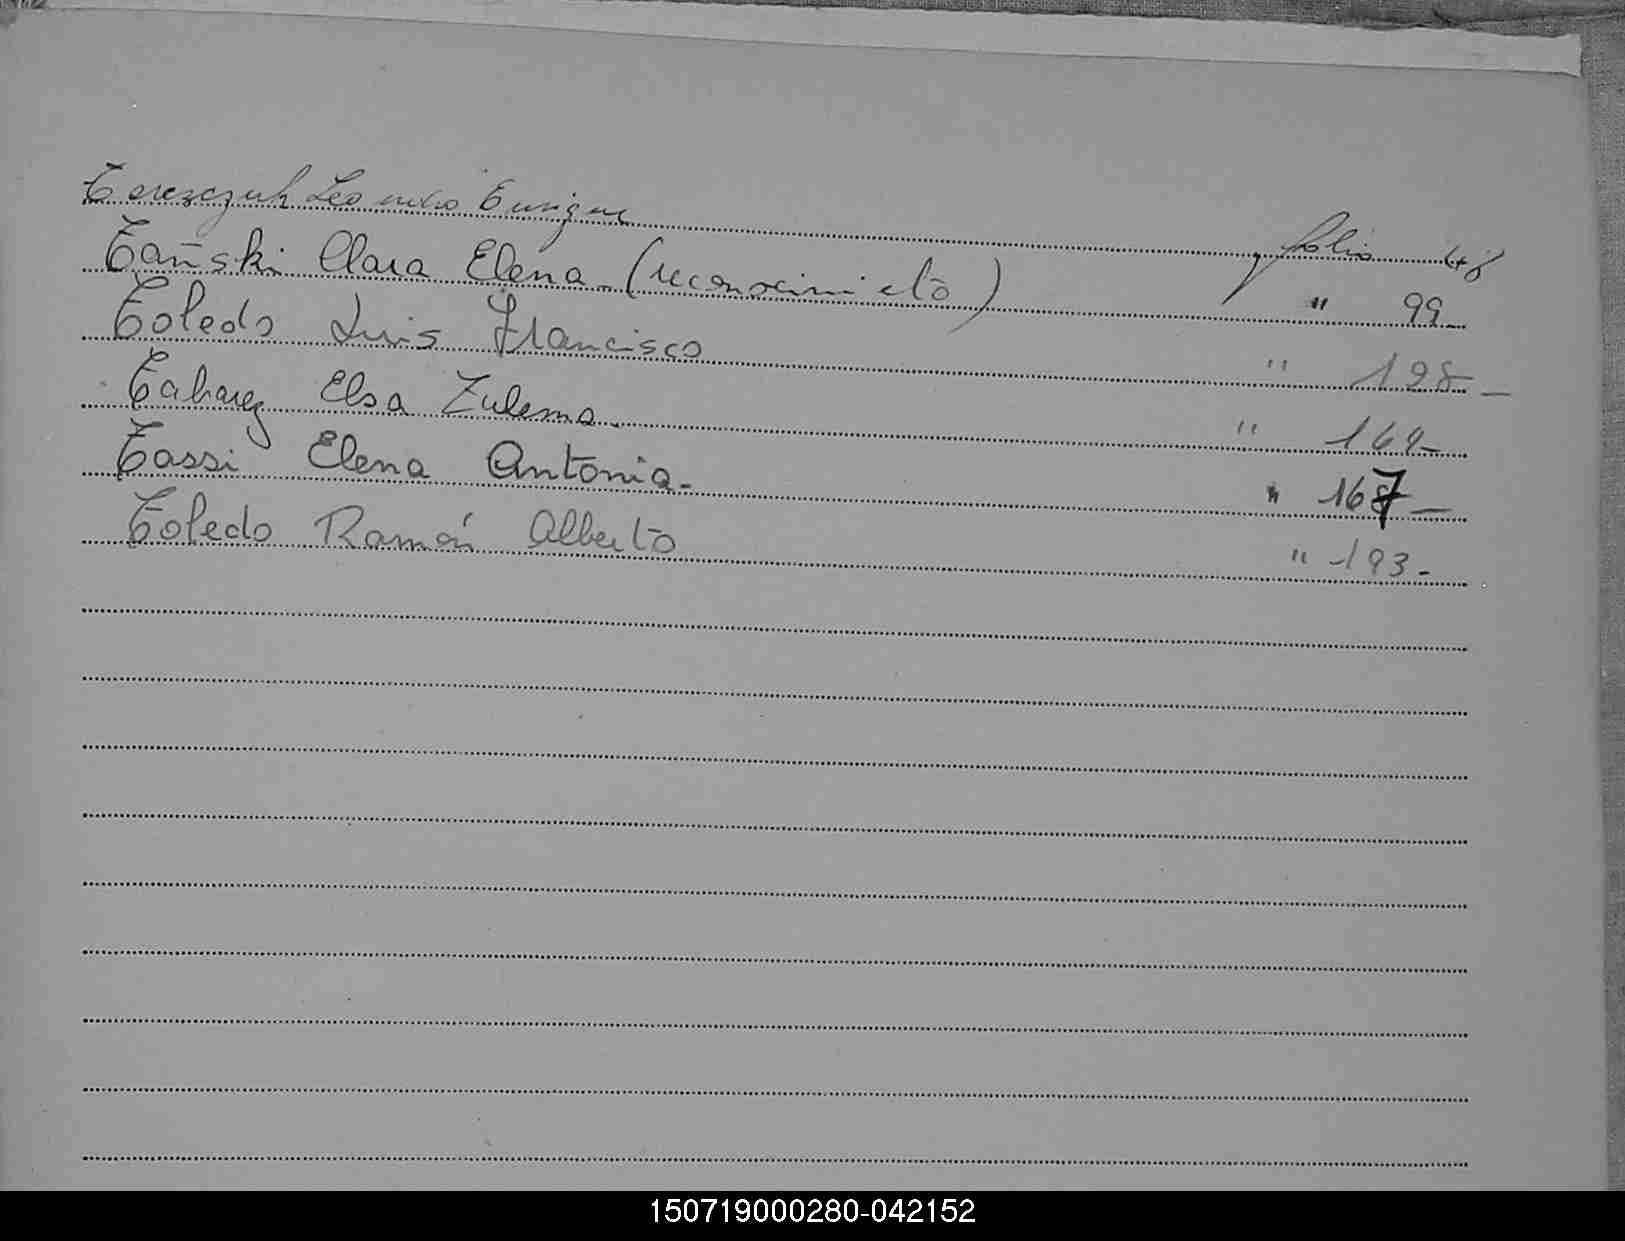 Terezczuk Leandro Enrique folio 48
Tañski Clara Elena (reconocimieto) " 99
Toledo Luis Francisco " 128
Tabarez Elsa Zulema " 164
Tassi Elena Antonia " 167
Toledo Ramón Alberto " 193
150719000280-042152